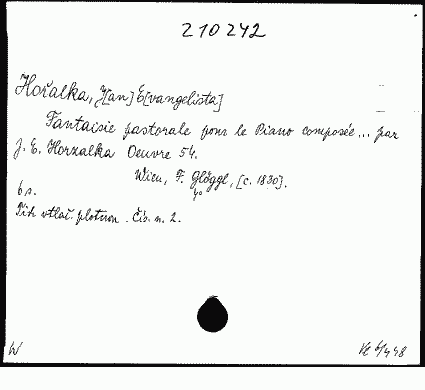 210242
Hořalka, J[an] E[vangelista]
Fantaisie pastorale pour le Piano composée ... par
J. E. Horzalka Oeuvre 54.
Wien, F. Glöggl, [c. 1830].
4°
6 s.
Tit. vtlač. plotnou. Čís. n. 2.
W